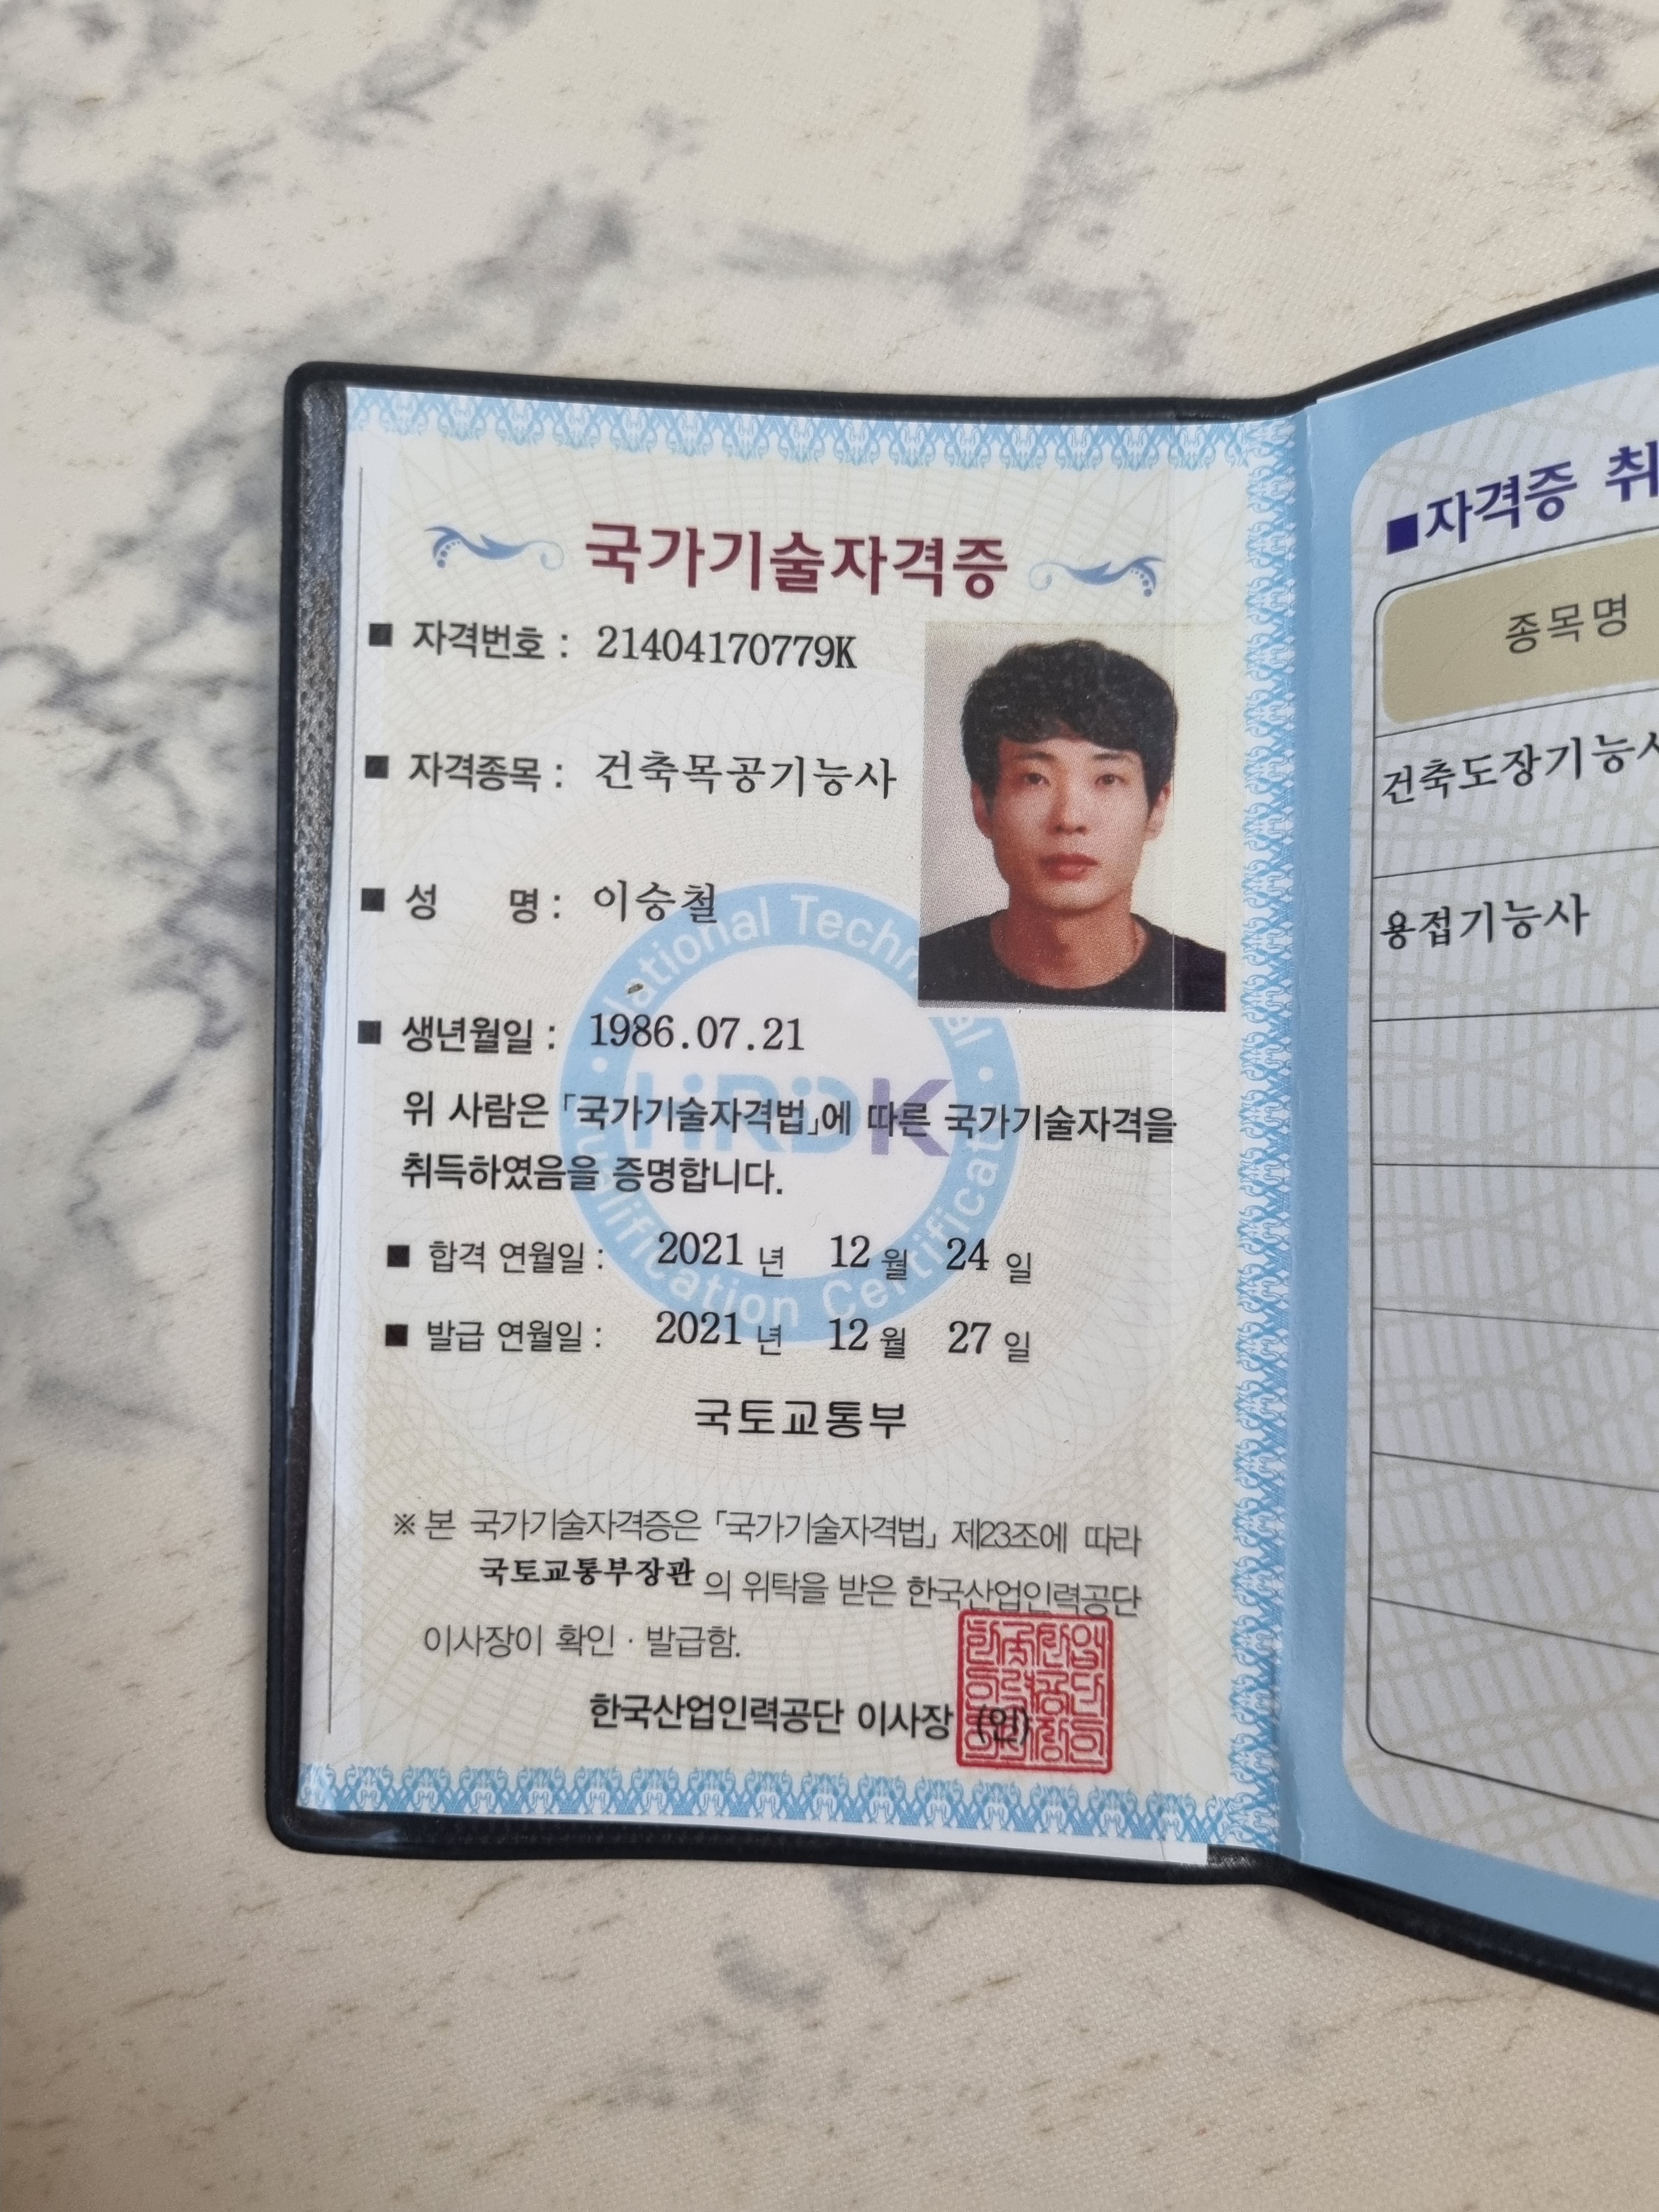 국가기술자격증
■ 자격번호 : 21404170779K
■ 자격종목 : 건축목공기능사
■ 성 명 : 이승철
■ 생년월일 : 1986.07.21
위 사람은 「국가기술자격법」에 따른 국가기술자격을
취득하였음을 증명합니다.
■ 합격 연월일 : 2021 년 12 월 24 일
■ 발급 연월일 : 2021 년 12 월 27 일
국토교통부
※ 본 국가기술자격증은 「국가기술자격법」 제23조에 따라
국토교통부장관 의 위탁을 받은 한국산업인력공단
이사장이 확인 · 발급함.
한국산업인력공단 이사장 (인)
National Technical
Qualification Certificate
HRDK
■자격증 취
종목명
건축도장기능사
용접기능사